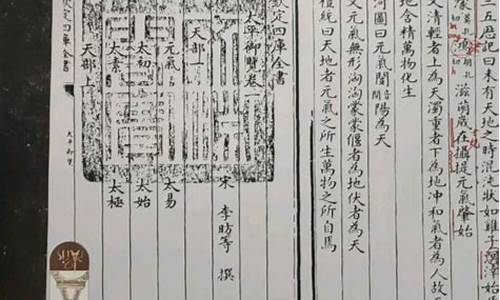 三五厯記曰未有天地之時混沌狀如雞子溟涬始
鴻胡孔切滋萌歲在攝提元氣肇始
清輕者上為天濁重者下為地冲和氣者為人故
地含精萬物化生
河圖曰元氣闓陽為天
又元氣無形洶洶蒙蒙偃者為地伏者為天
禮統曰天地者元氣之所生萬物之所自焉
欽定四庫全書
太平御覽卷
宋 李昉等 撰
天部一
元氣 太易
太初 太始
太素 太極
天部上
欽定四庫全書